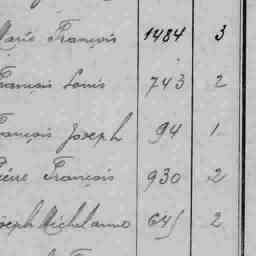 Marie François 1484 3
François Louis 743 2
François Joseph 94 1
Pierre François 930 2
Joseph Michel 645 2